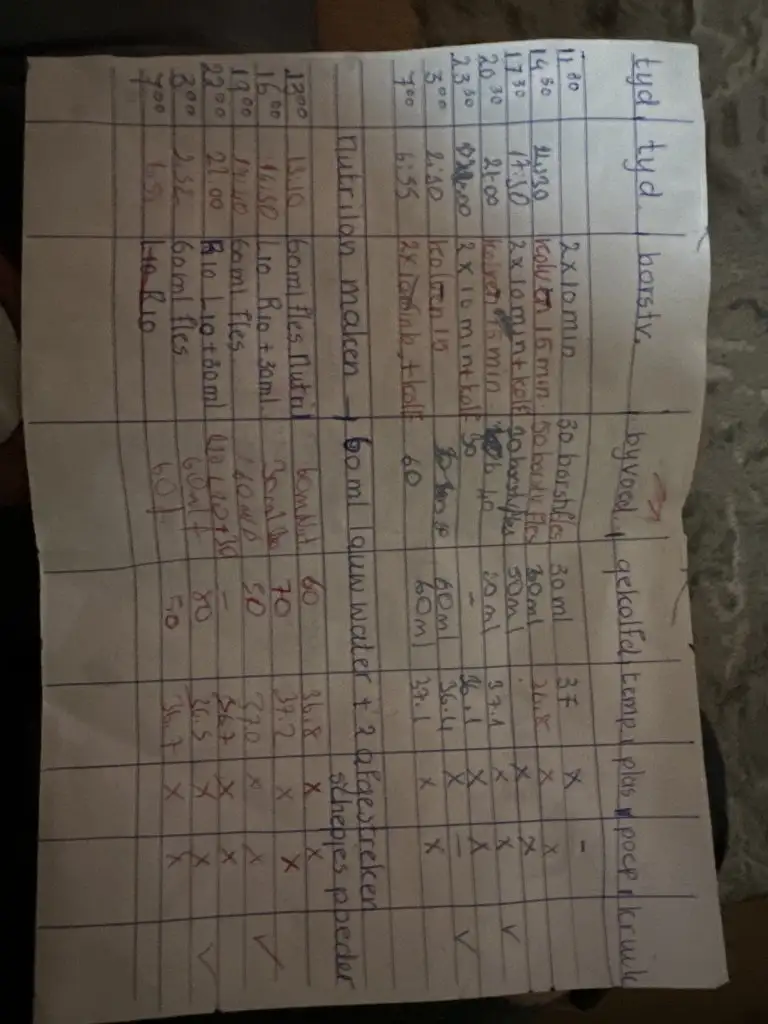 tyd, tyd, borstv. , byvoed, gekolfd, temp, plas, poep, kruik
11 30 2x10 min 30 borstfles 30 ml 37 x -
14 30 kolven 15 min. 50 borstv fles 30ml 36.8 x x
17 30 17:30 2x10min + kolf borstvfles 50ml x x
20 30 21:00 kolven 15 min 40 20ml 37.1 x x ✓
23 30 2x10min+kolf 30 - 36.1 x x
3 00 2:30 kolven 15 60ml 36.4 x - ✓
7 00 6:55 2x10min + kolf 60 60ml 37.1 x x
Nutrilon maken → 60 ml lauw water + 2 afgestreken
schepjes poeder
13 00 13.10 60ml fles Nutril 60 36.8 x x
16 00 L10 R10 + 30ml. 70 37.2 x x
19 00 60ml fles 50 37.0 x x ✓
22 00 22.00 R10 L10+30ml - 36.7 x x
3 00 2.32 60ml fles 60ml f 80 36.5 x x ✓
7 00 6.55 L10 R10 60 f 50 36.7 x x